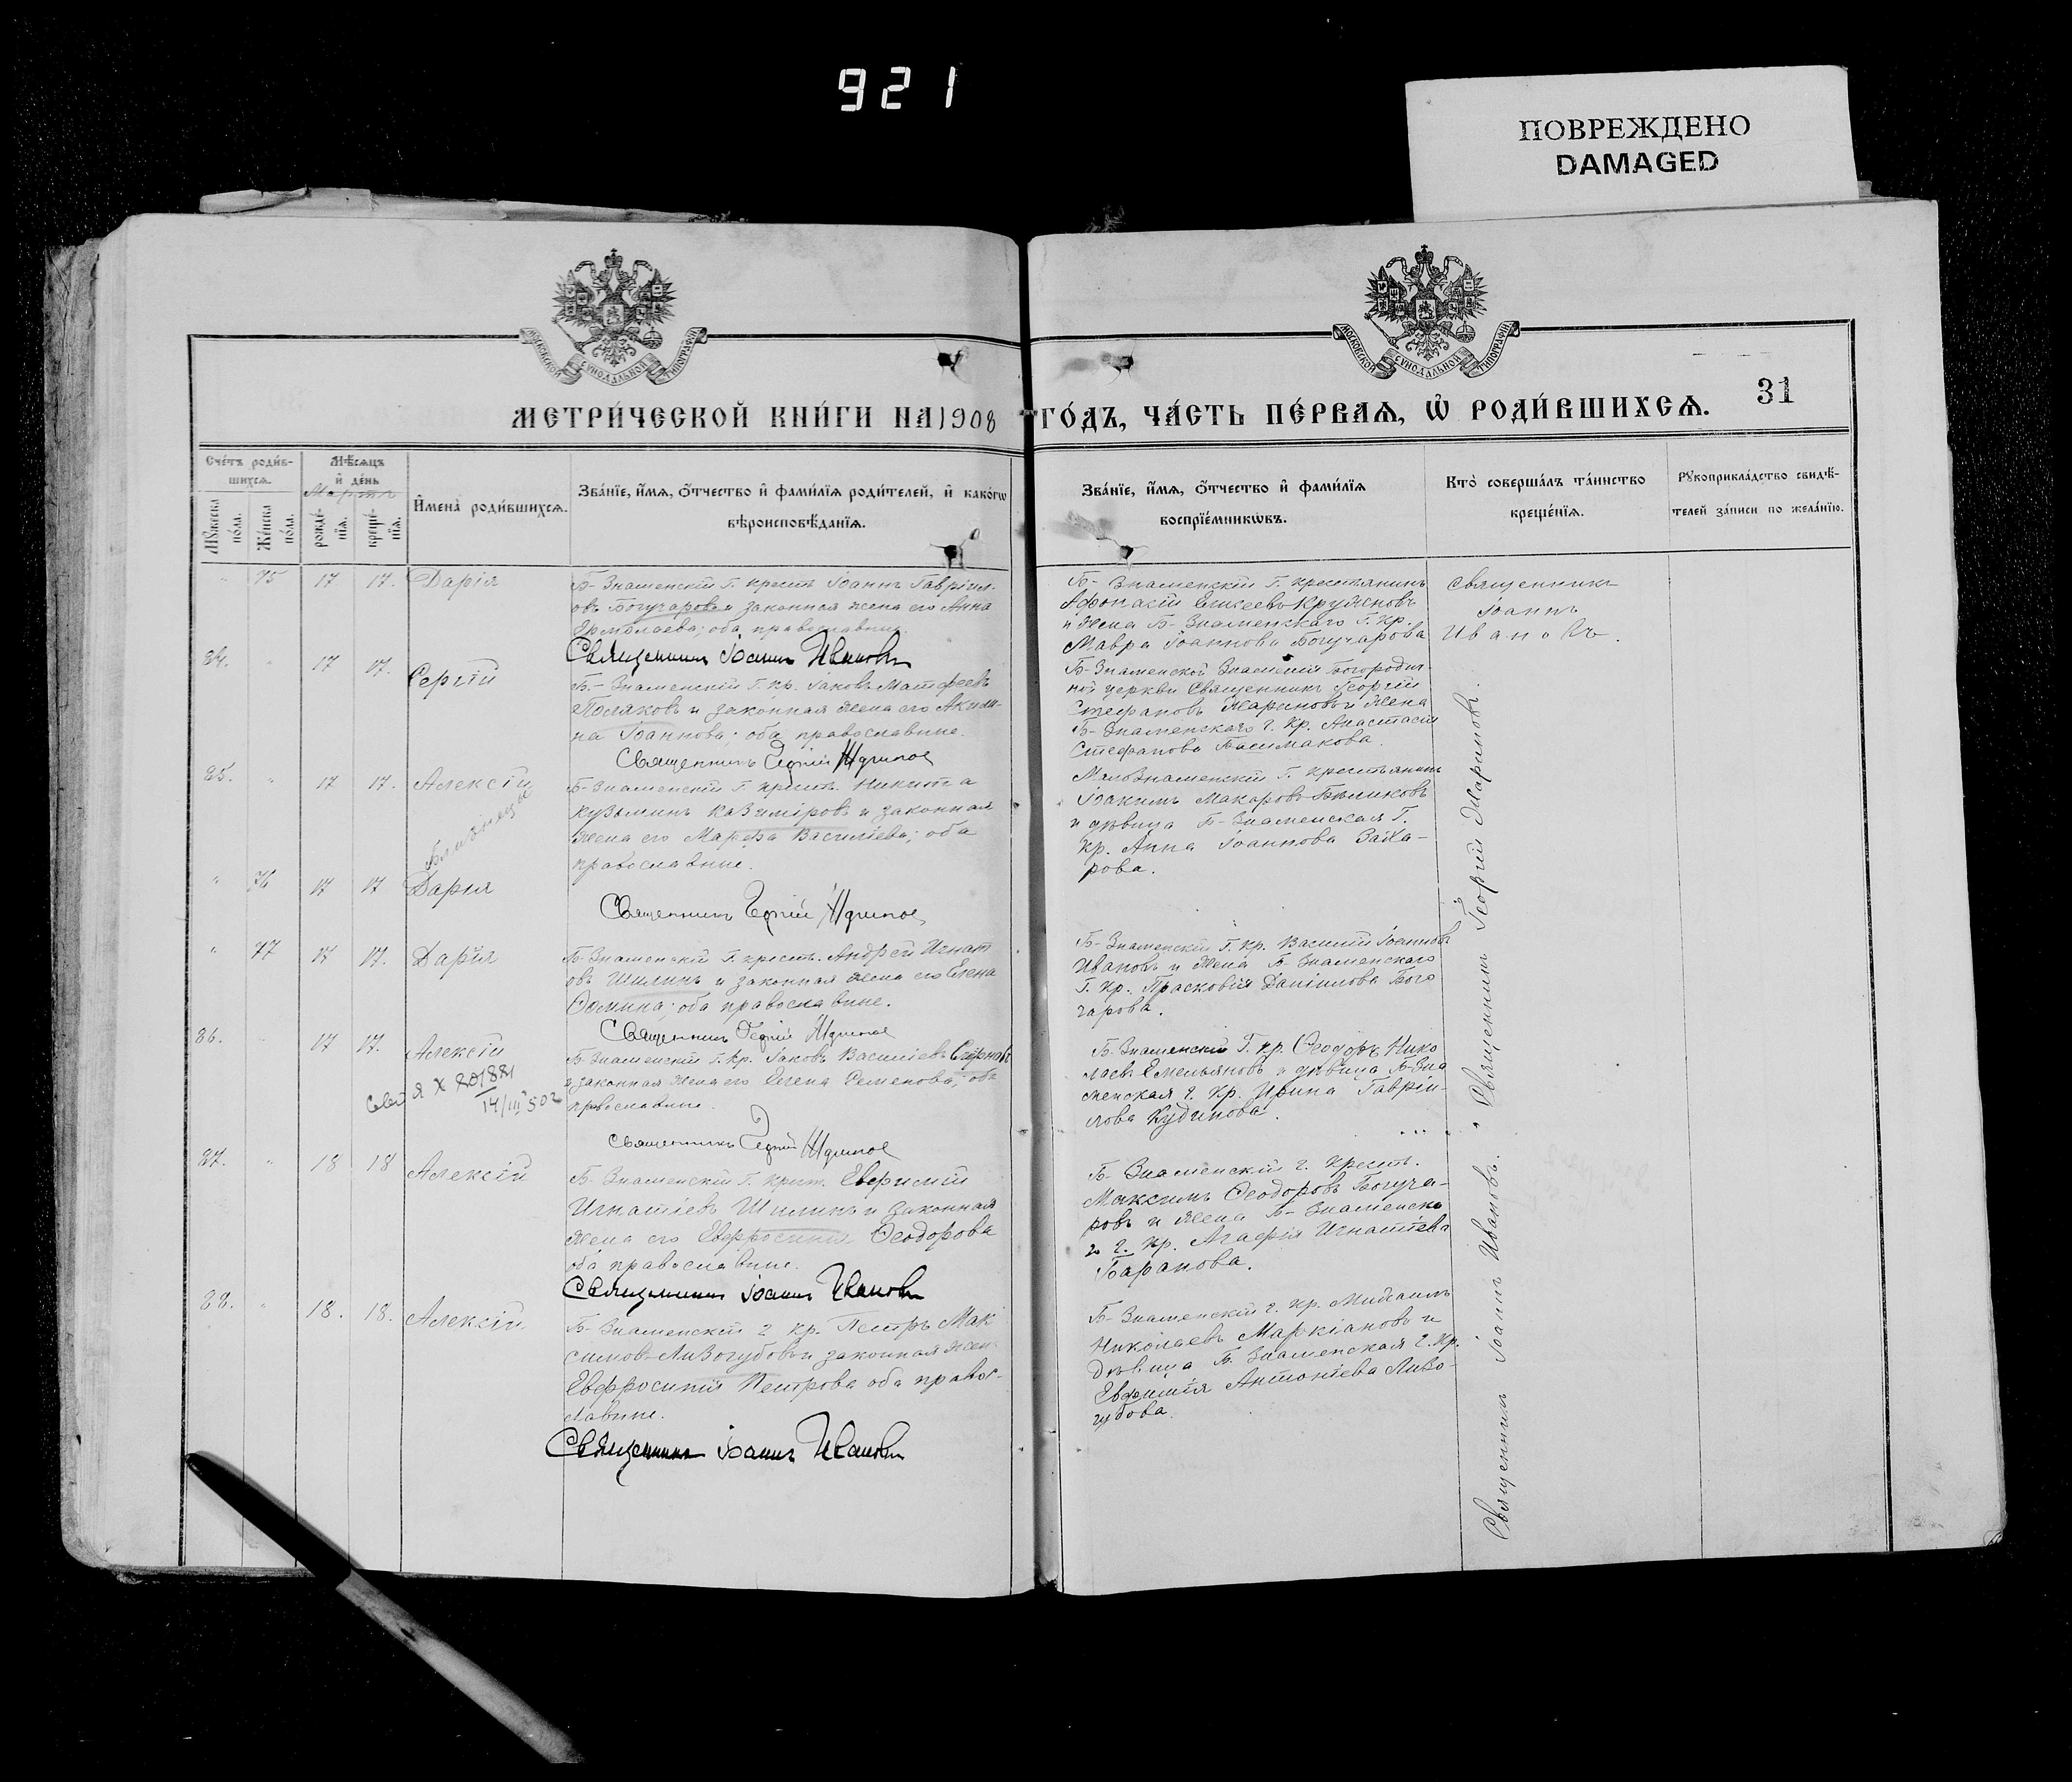 921
ПОВРЕЖДЕНО
DAMAGED
МОСКОВСКОЙ СѴНОДАЛЬНОЙ ТИПОГРАФІИ
МОСКОВСКОЙ СѴНОДАЛЬНОЙ ТИПОГРАФІИ
МЕТРИ́ЧЕСКОЙ КНИ́ГИ НА 1908 ГО́ДЪ, ЧА́СТЬ ПЕ́РВАѦ, Ѽ РОДИ́ВШИХСѦ.
31
Сче́тъ роди́в-
шихсѧ.
Мꙋ́жеска по́ла.
Же́нска по́ла.
Мѣ́сѧцъ
и҆ де́нь
Мартъ
рожде́-нїѧ.
креще́-нїѧ.
И҆мена̀ роди́вшихсѧ.
Зва́нїе, и҆́мѧ, ѻ҆́тчество и҆ фами́лїѧ роди́телей, и҆ како́гѡ
вѣроисповѣ́данїѧ.
Зва́нїе, и҆́мѧ, ѻ҆́тчество и҆ фами́лїѧ
воспрїе́мникѡвъ.
Кто̀ соверша́лъ та́инство
креще́нїѧ.
Рꙋкоприкла́дство свидѣ́-
телей за́писи по жела́нїю.
" 75 17 17. Дарія
Б-Знаменскій Г. крест. Іоаннъ Гавріил-
овъ Богучаровъ и законная жена его Анна
Ермолаева; оба православные.
Священникъ Іоаннъ Ивановъ
Б-Знаменскій Г. крестьянинъ
Афонасій Кружковъ
и жена Б-Знаменскаго Г. кр.
Мавра Іоаннова Богучарова
священникъ
Іоаннъ
Ивановъ.
84. " 17 17. Сергій
Б-Знаменскій Г. кр. Іаковъ Матфеевъ
Поляковъ и законная жена его Акили-
на Іоаннова; оба православные.
Священникъ Георгій Жариновъ
Б-Знаменской Знаменія Богородич-
ной церкви Священникъ Георгій
Стефановъ Жариновъ и жена
Б-Знаменскаго г. кр. Анастасія
Стефанова Башмакова.
85. " 17 17. Алексій
Близнецы
Б-Знаменскій Г. крест. Никита
Кузьминъ Казиміровъ и законная
жена его Марфа Василіева; оба
православные.
Малознаменскій Г. крестьянинъ
Іоакимъ Макаровъ Бѣликовъ
и дѣвица Б-Знаменская Г.
кр. Анна Іоаннова Заха-
рова.
" 76 17 17 Дарія
Священникъ Георгій Жариновъ
" 77 17 17. Дарія
Б-Знаменскій Г. крест. Андрей Игнат
овъ Шилинъ и законная жена его Елена
Фомина; оба православные.
Священникъ Георгій Жариновъ
Б-Знаменскій Г. кр. Василій Іоанновъ
Ивановъ и жена Б-Знаменскаго
Г. кр. Прасковія Даніилова Бого
чарова.
86. 17 17. Алексій
14/III 502
Б-Знаменскій Г. кр. Іаковъ Василіевъ
и законная жена его Елена Семенова; оба
православные.
Священникъ Георгій Жариновъ
Б-Знаменскій Г. кр. Ѳеодоръ Нико
лаев. Емельяновъ и дѣвица Б-Зна
менская г. кр. Ирина Гавріи-
лова Кудинова.
87. " 18 18 Алексій
Б-Знаменскій Г. крест. Евфимій
Игнатіевъ Шилинъ и законная
жена его Евфросинія Ѳеодорова
оба православные.
Священникъ Іоаннъ Ивановъ
Б-Знаменскій г. крест.
Максимъ Ѳеодоровъ Богуча-
ровъ и жена Б-Знаменска
го г. кр. Агафія Игнатіева
Баранова.
88. " 18. 18. Алексій
Б-Знаменскій г кр. Петръ Мак
симовъ Лизогубовъ и законная жен
Евфросинія Петрова оба правос-
лавные.
Священникъ Іоаннъ Ивановъ
Б-Знаменскій г. кр. Михаилъ
Николаевъ Маркіановъ и
дѣвица Б. Знаменская г. кр.
Евфимія Антоніева Лизо-
губова.
Священникъ Іоаннъ Ивановъ. Священникъ Георгій Жариновъ.